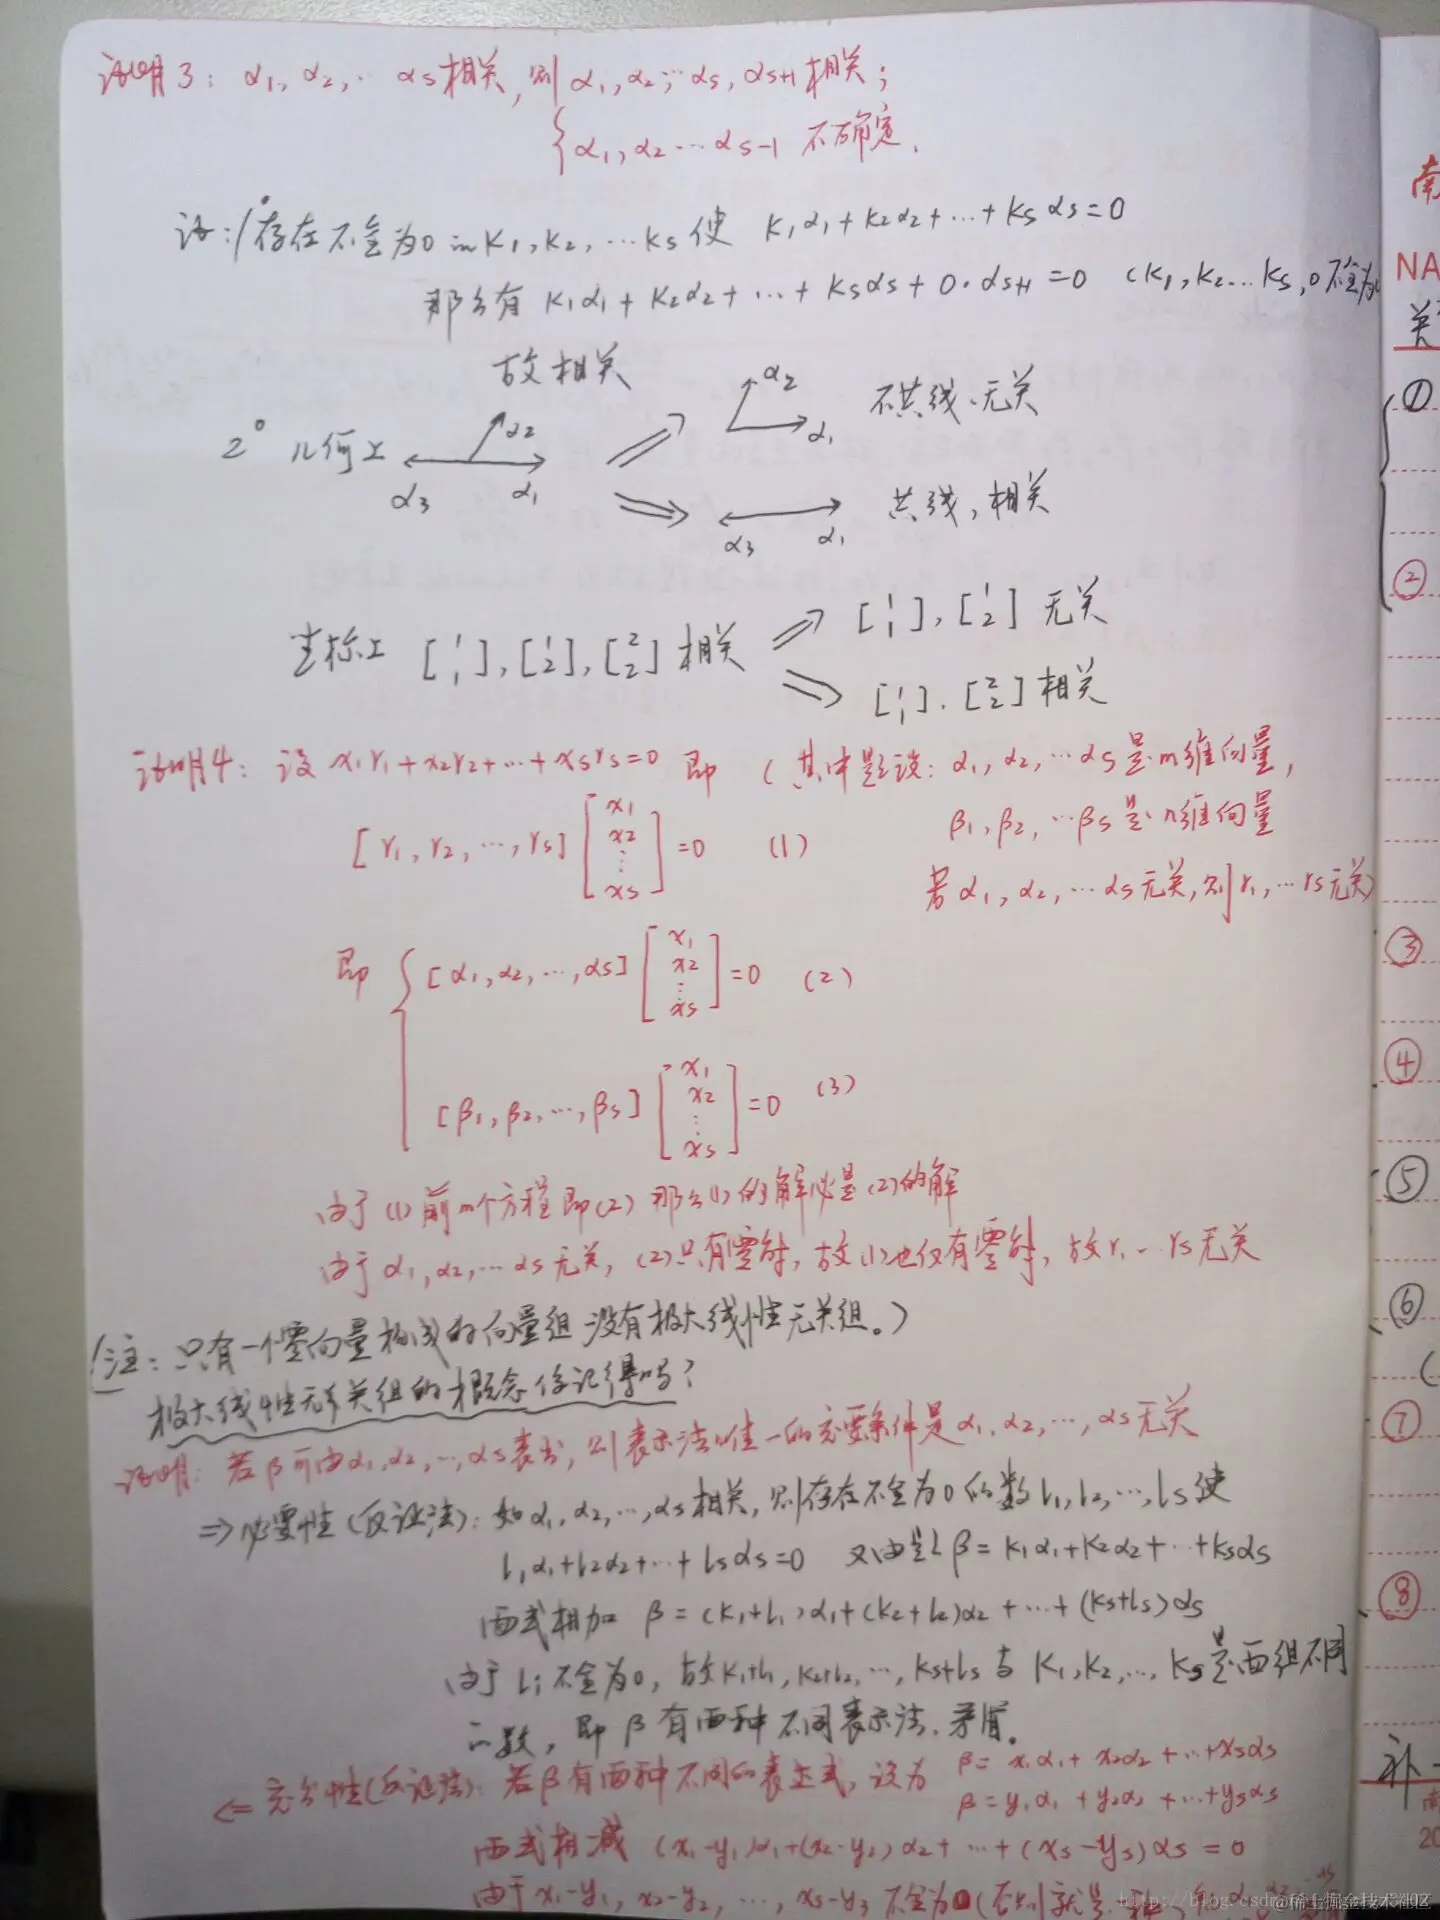 证明3: α1, α2, … αs 相关, 则 α1, α2, … αs, αs+1 相关;
{ α1, α2 … αs-1 不确定.
证: 1° 存在不全为0的 k1, k2, … ks 使 k1α1+k2α2+…+ksαs=0
那么有 k1α1+k2α2+…+ksαs+0·αs+1=0 (k1, k2…ks, 0不全为
故相关
α2
2° 几何上 α2 α3 α1 ⇒ α1 不共线、无关
⇒ α3 α1 共线, 相关
坐标上 [1 1], [1 2], [2 2] 相关 ⇒ [1 1], [1 2] 无关
⇒ [1 1], [2 2] 相关
证明4: 设 x1r1+x2r2+…+xsrs=0 即 (其中题设: α1, α2, … αs 是m维向量,
β1, β2, … βs 是n维向量
[r1, r2, …, rs] [x1 x2 ⋮ xs] =0 (1)
若 α1, α2, … αs 无关, 则 r1, … rs 无关)
即 { [α1, α2, …, αs] [x1 x2 ⋮ xs] =0 (2)
[β1, β2, …, βs] [x1 x2 ⋮ xs] =0 (3)
由于(1)前m个方程即(2) 那么(1)的解必是(2)的解
由于 α1, α2, … αs 无关, (2)只有零解, 故(1)也仅有零解, 故 r1 … rs 无关
(注: 只有一个零向量构成的向量组没有极大线性无关组。)
极大线性无关组的概念你记得吗?
证明: 若β可由α1, α2, …, αs表出, 则表示法唯一的充要条件是 α1, α2, …, αs 无关
⇒ 必要性(反证法): 如 α1, α2, …, αs 相关, 则存在不全为0的数 l1, l2, …, ls 使
l1α1+l2α2+…+lsαs=0 又由是 β=k1α1+k2α2+…+ksαs
两式相加 β=(k1+l1)α1+(k2+l2)α2+…+(ks+ls)αs
由于 li 不全为0, 故 k1+l1, k2+l2, …, ks+ls 与 k1, k2, …, ks 是两组不同
的数, 即 β 有两种不同表示法. 矛盾。
⇐ 充分性(反证法): 若β有两种不同的表达式, 设为 β=x1α1+x2α2+…+xsαs
β=y1α1+y2α2+…+ysαs
两式相减 (x1-y1)α1+(x2-y2)α2+…+(xs-ys)αs=0
由于 x1-y1, x2-y2, …, xs-ys 不全为0 (否则就是一种
南
NA
关
①
②
③
④
⑤
⑥
(
⑦
⑧
补
南
20
@稀土掘金技术社区